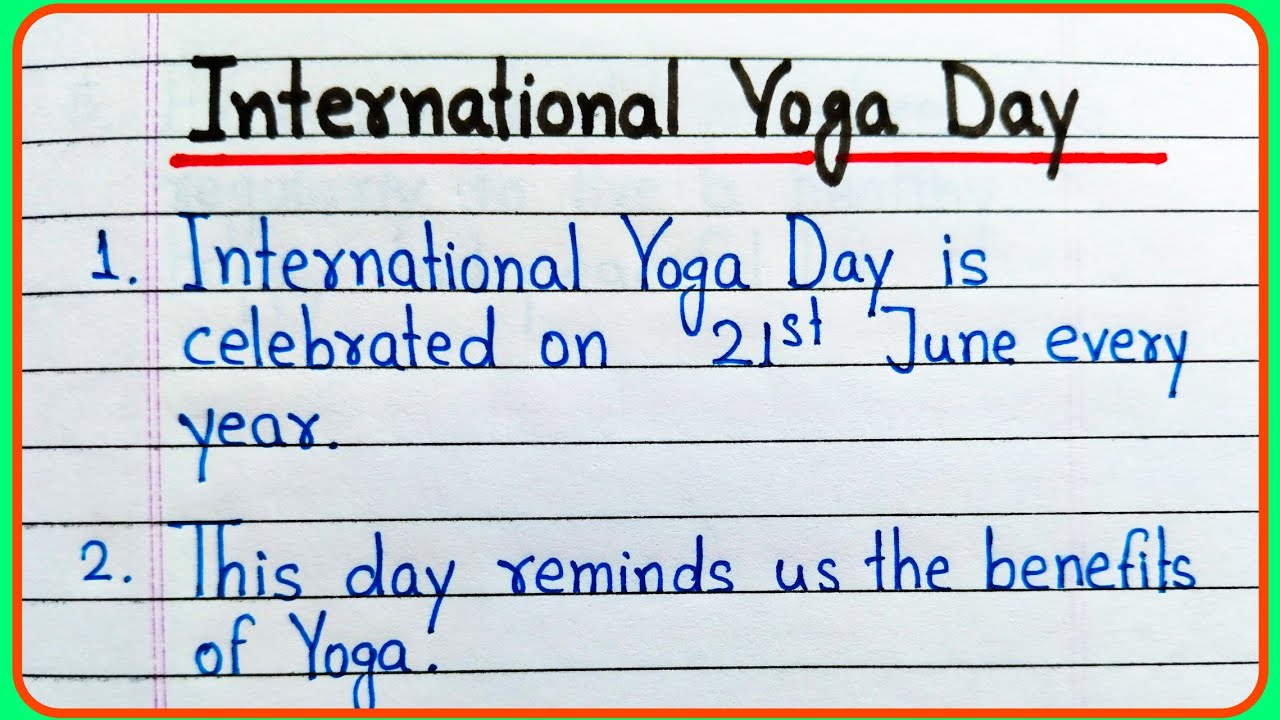 International Yoga Day
1. International Yoga Day is
celebrated on 21st June every
year.
2. This day reminds us the benefits
of Yoga.